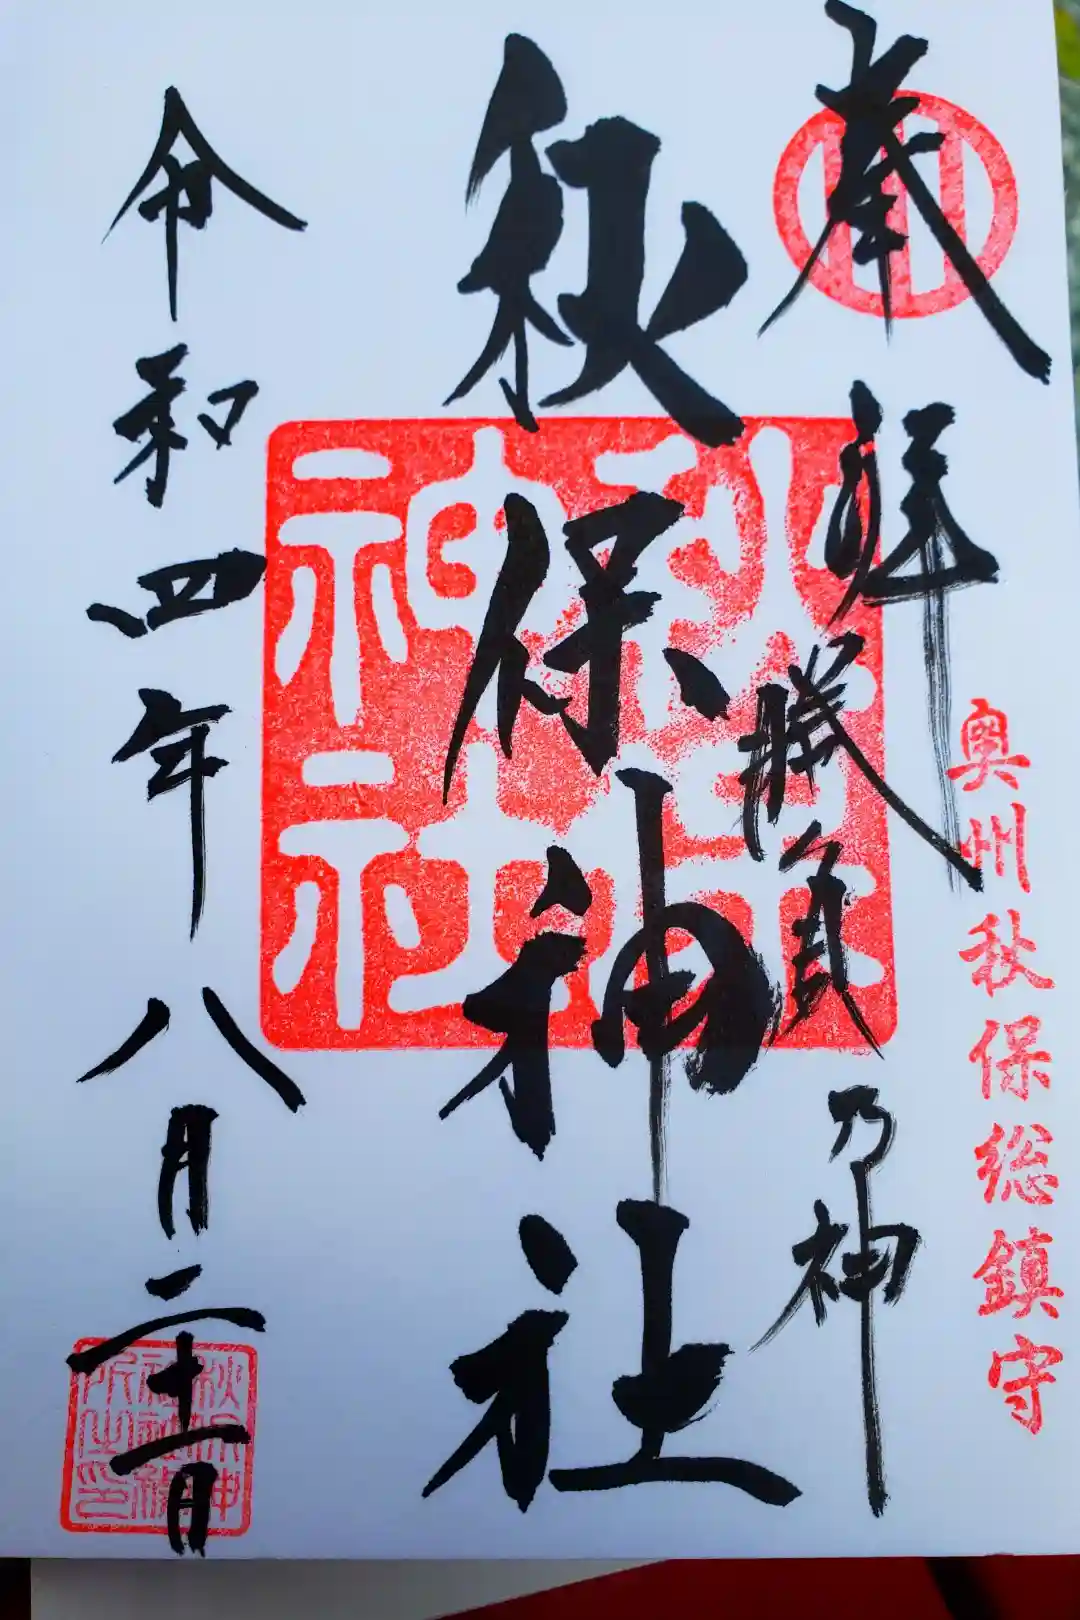 奥州秋保総鎮守
奉拝
勝負乃神
秋保神社
秋保
神社
令和四年八月二十一日
秋保神
社社務
所之印